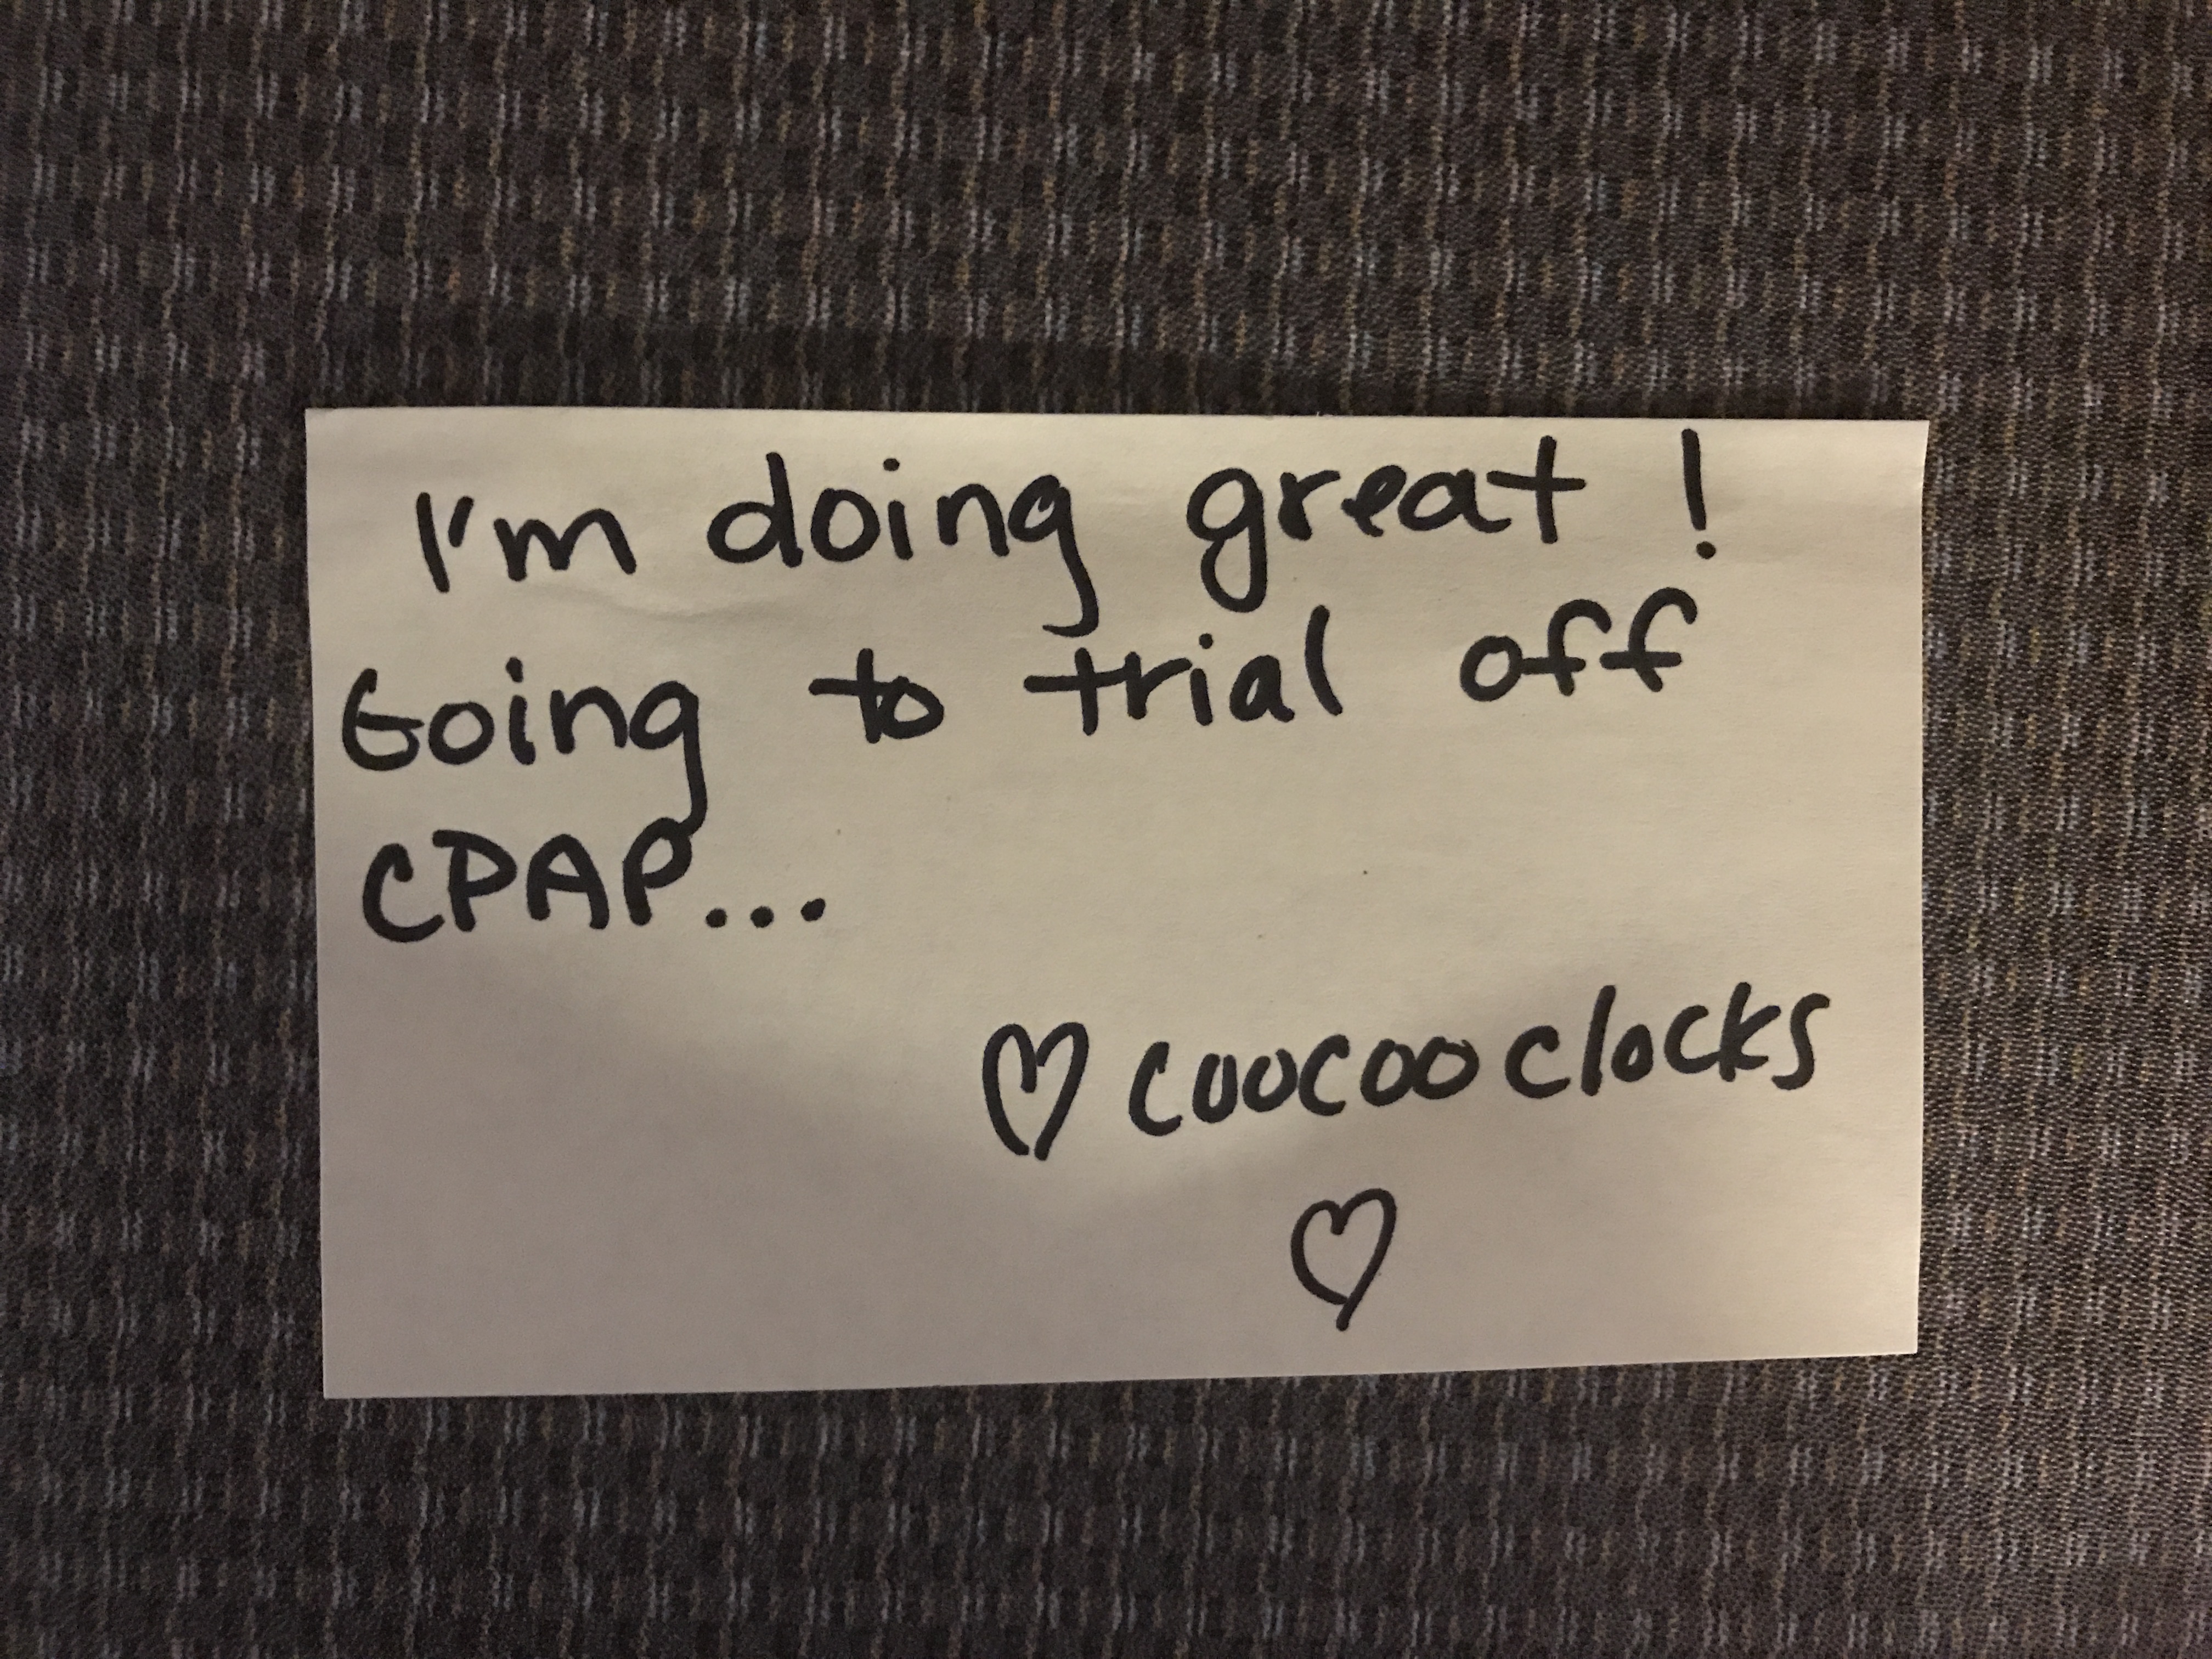 I'm doing great!
Going to trial off
CPAP...
♡ coocoo clocks
♡